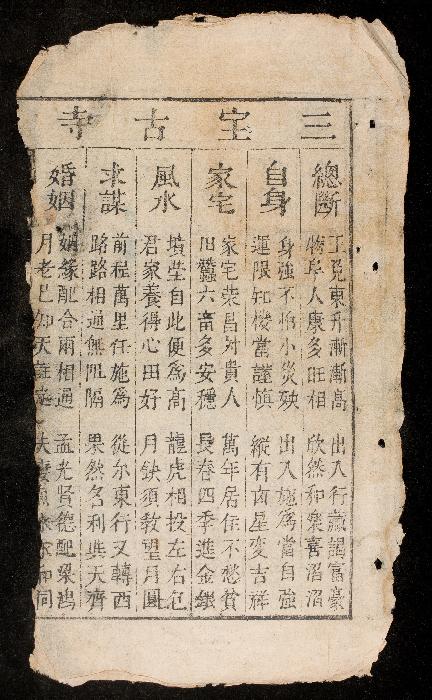 三宝古寺
總斷
玉兔東升漸漸高 出入行藏謁富豪
物阜人康多旺相 欣然和樂喜滔滔
自身
身強不怕小災殃 出入施為當自強
運限 當謹慎 縱有凶星变吉祥
家宅
家宅荣昌对貴人 萬年居住不愁貧
田蠶六畜多安穩 長春四季進金銀
風水
墳塋自此便為高 龍虎相投左右包
君家養得心田好 月缺須教望月圓
求謀
前程萬里任施為 從尔東行又轉西
路路相通無阻隔 果然名利與天齊
婚姻
姻緣配合兩相通 孟光贤德配梁鴻
月老已知天註定 夫妻 和同